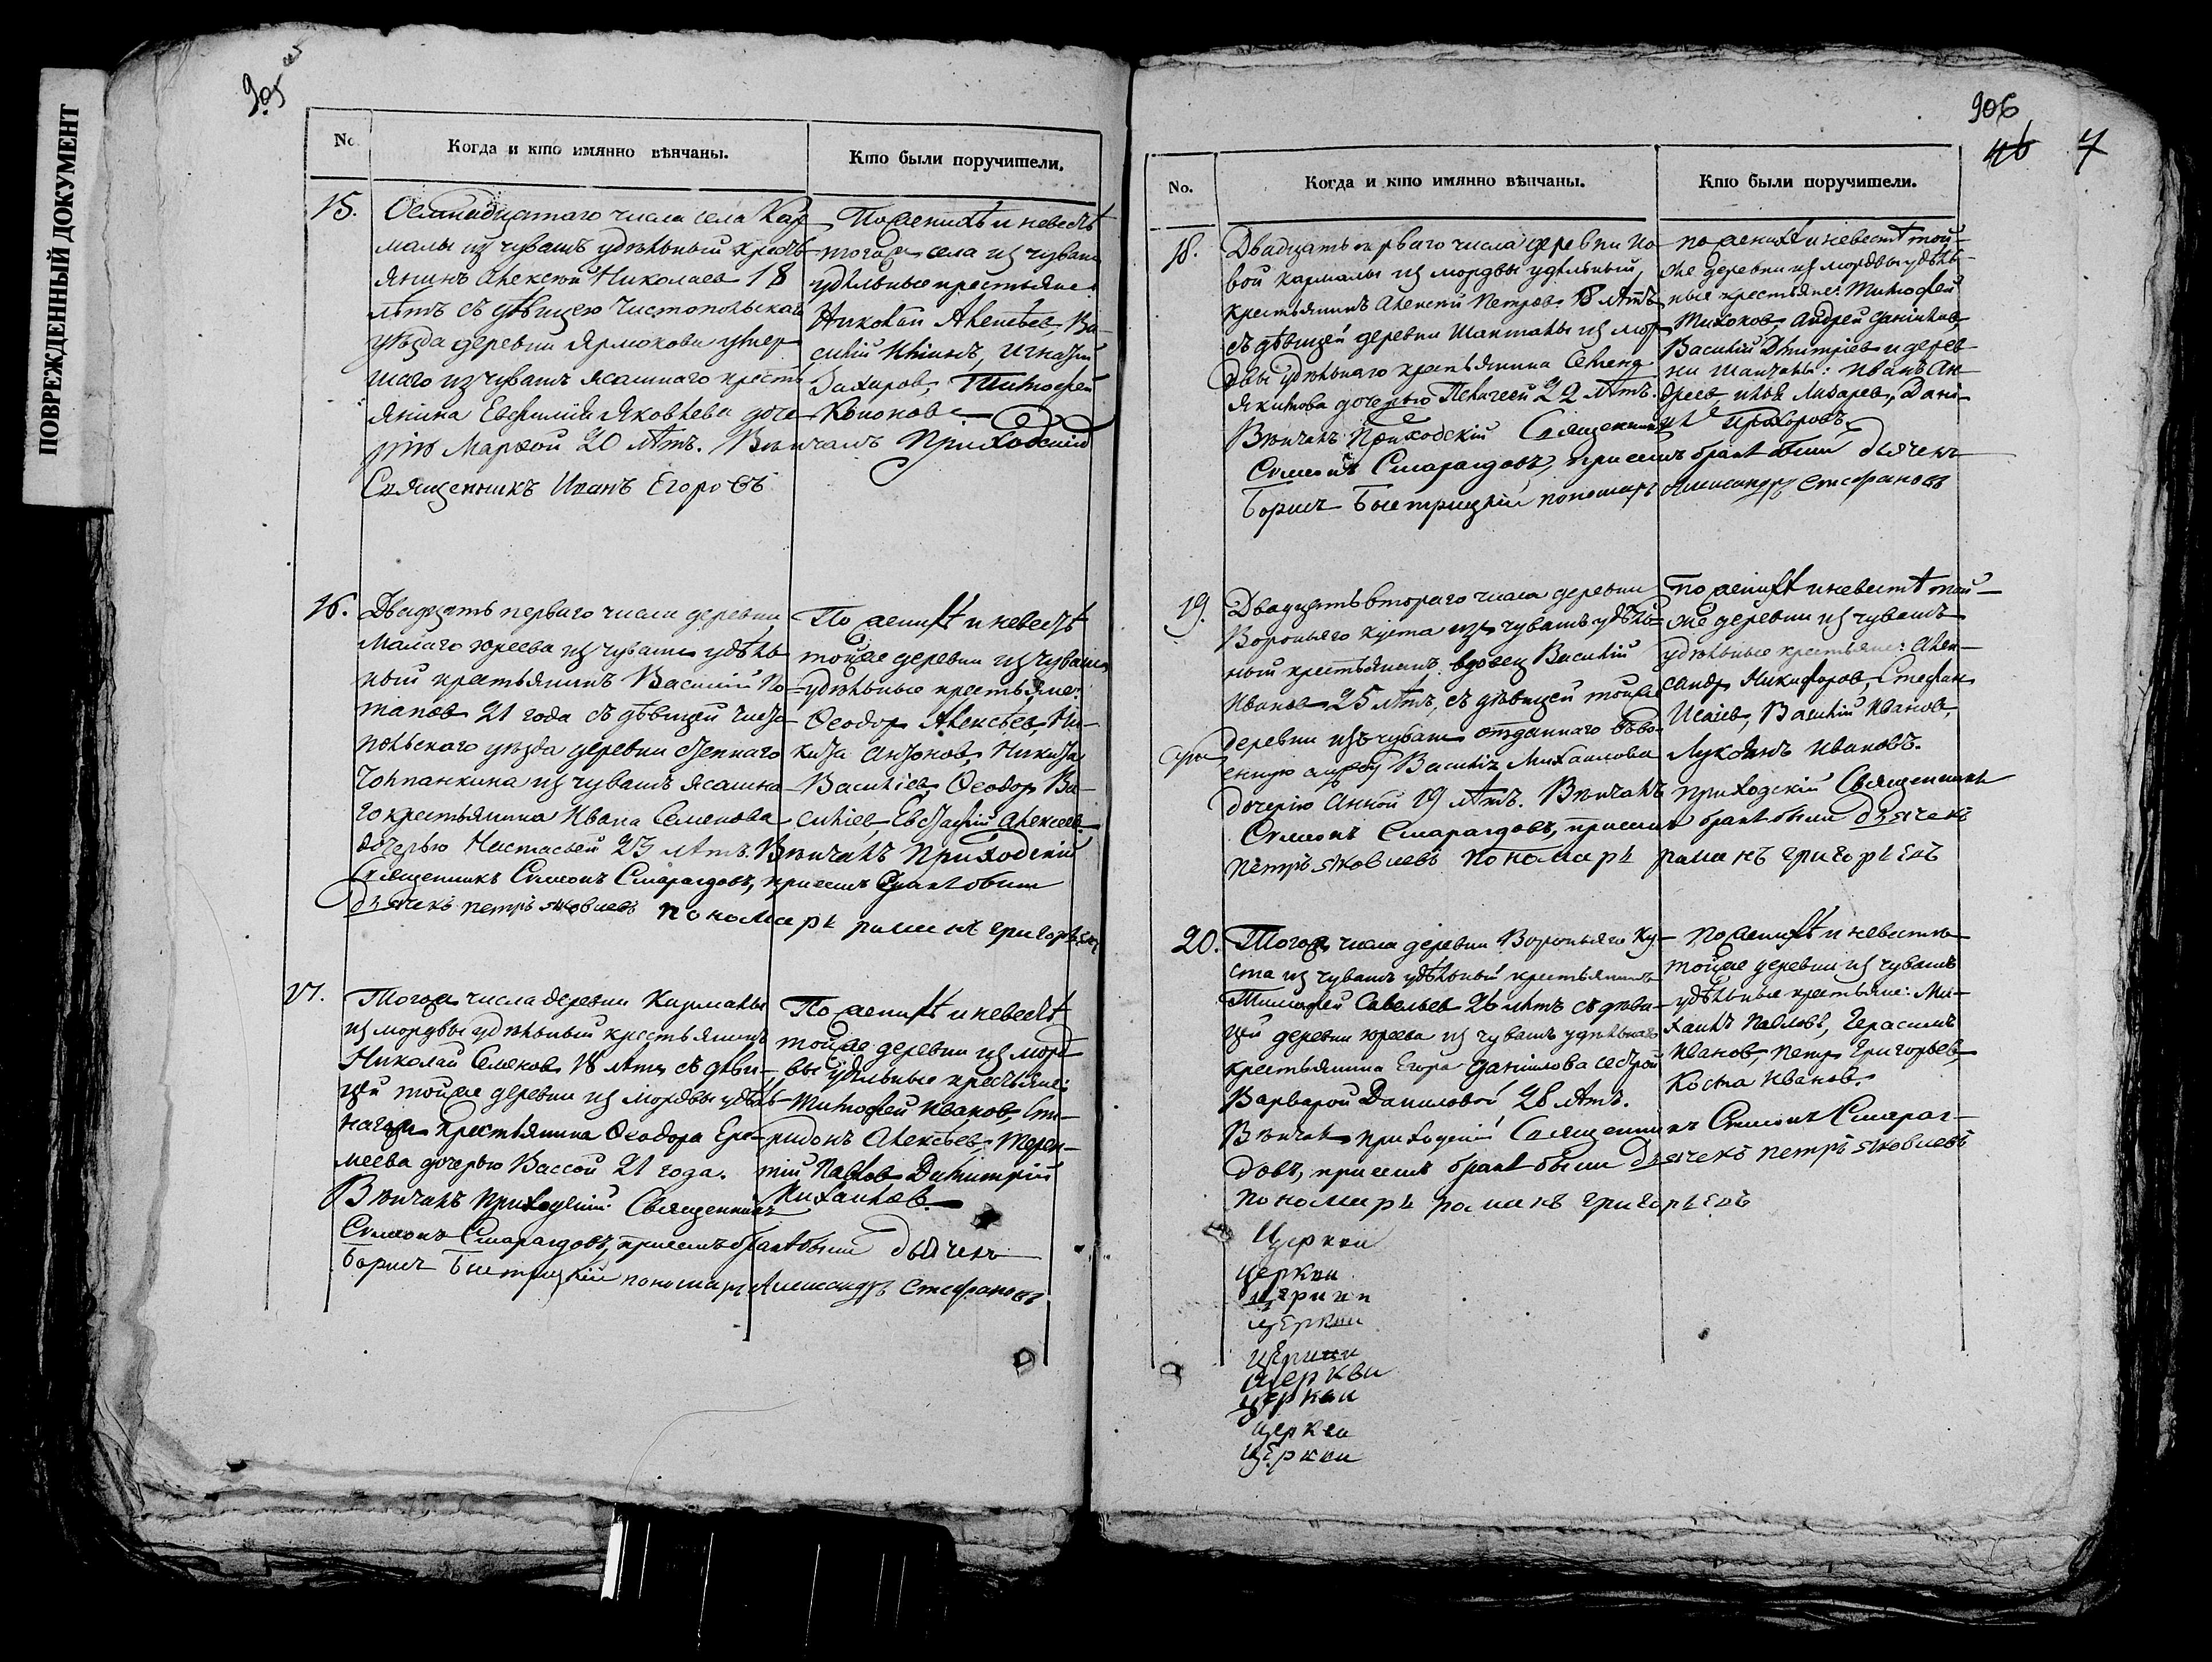 ПОВРЕЖДЕННЫЙ ДОКУМЕНТ
905
No.
Когда и кто имянно вѣнчаны.
Кто были поручители.
15.
Осмнадцатаго числа села Кар
малы из чувашъ удѣльный кресть
янинъ Алексѣй Николаев 18
лѣтъ съ дѣвицею Чистопольскаго
уѣзда деревни Ярмокови умер
шаго из чувашъ ясашнаго кресть
янина Евфимія Яковлева доче
рію Марѳой 20 лѣтъ. Вѣнчалъ Приходскій
Священникъ Иванъ Егоровъ
По женихѣ и невестѣ
тогоже села из чуваш
удѣльные крестьяне
Николай Алексѣев, Ва-
силій Ильинъ, Игнатій
Захаров, Тимофей
Кононов
16.
Двадцать перваго числа деревни
Малаго Юреева из чуваш удѣль
ный крестьянинъ Василий По
тапов 21 года съ дѣвицей Чисто
польскаго уѣзда деревни Степнаго
Чолпанкина из чувашъ ясашна
го крестьянина Ивана Семенова
дочерью Настасьей 23 лѣтъ. Вѣнчалъ Приходскій
Священник Симеонъ Смарагдовъ, при семъ бракѣ были
дьячекъ петръ яковлевъ пономарь раманъ григорьевъ
По женихѣ и невестѣ
тойже деревни из чуваш
удѣльные крестьяне:
Ѳеодор Алексѣев, Ни-
кита Антонов, Никита
Васильев, Ѳеодор Ва-
сильев, Евстафій Алексеев
17.
Тогож числа деревни Кармалы
из мордвы удѣльный крестьянинъ
Николай Семенов 18 лѣтъ съ дѣви-
цей тойже деревни из мордвы удѣль
наго крестьянина Ѳеодора Ере-
меева дочерью Вассой 21 года.
Вѣнчалъ Приходскій Священникъ
Симеонъ Смарагдовъ, при семъ бракѣ были дьячекъ
Борисъ Быстрицкій пономарь Александръ Стефановъ
По женихѣ и невестѣ
тойже деревни из морд
вы удѣльные крестьяне:
Тимофей Иванов, Спи-
ридонъ Алексѣев, Терен-
тій Павлов Димитрій
Михайлов.
906
46
7
No.
Когда и кто имянно вѣнчаны.
Кто были поручители.
18.
Двадцать перваго числа деревни Но-
вой Кармалы из мордвы удѣльный,
крестьянинъ Алексѣй Петров 18 лѣтъ
съ дѣвицей деревни Шанталы из мор
двы удѣльнаго крестьянина Семена
Якимова дочерью Пелагеей 22 лѣтъ.
Вѣнчалъ Приходскій Священникъ
Симеонъ Смарагдовъ, при семъ бракѣ были дьячекъ
Борисъ Быстрицкій пономарь Александръ Стефановъ
по женихѣ и невестѣ той-
же деревни из мордвы удѣль-
ные крестьяне: Тимофей
Тихонов, Андрей Данилов,
Василий Дмитріев и дерев
ни Шанталы: Иванъ Ан
дреев, Лазарев, Дани-
илъ Прохоровъ
19.
Двадцать втораго числа деревни
Вороньяго куста изъ чувашъ удѣль-
ный крестьянинъ вдовец Василий
Иванов 25 лѣтъ, съ дѣвицей тойже
деревни изъ чуваш отданнаго въ во-
енную службу Василія Михайлова
дочерію Анной 19 лѣтъ. Вѣнчалъ приходскій Священникъ
Симеонъ Смарагдовъ, при семъ бракѣ были дьячекъ
петръ яковлевъ пономарь раманъ григорьевъ
По женихѣ и невестѣ той-
же деревни из чувашъ
удѣльные крестьяне: Алек-
сандр Никифоров, Стефан
Исаіев, Василий Иванов,
Лукоянъ Ивановъ.
20.
Тогож числа деревни Вороньяго Ку-
ста из чувашъ удѣльный крестьянинъ
Тимофей Савельев 26 лѣтъ съ дѣви-
цей деревни Юреева из чувашъ удѣльнаго
крестьянина Егора Данилова сестрой
Варварой Даниловой 28 лѣтъ.
Вѣнчалъ приходскій Священникъ Симеонъ Смараг-
довъ, при семъ бракѣ были дьячекъ петръ яковлевъ
пономарь раманъ григорьевъ
По женихѣ и невестѣ
тойже деревни из чувашъ
удѣльные крестьяне: Ми-
хаилъ Павловъ, Герасимъ
Иванов, Петр Григорьев,
Косма Иванов.
Церкви
церкви
церкви
церкви
церкви
церкви
церкви
церкви
церкви